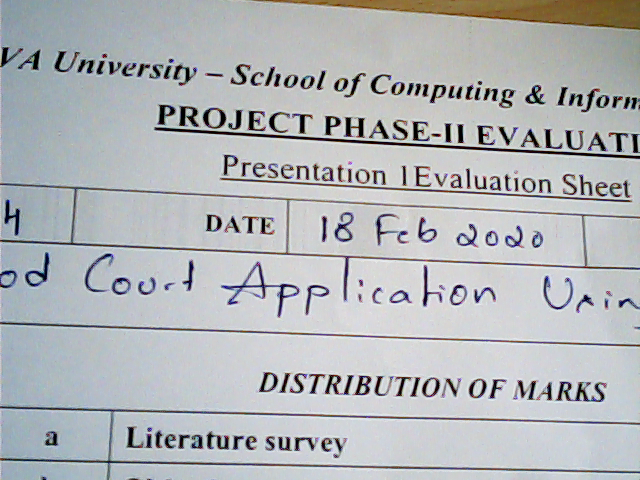 VA University – School of Computing & Inform
PROJECT PHASE-II EVALUATI
Presentation 1Evaluation Sheet
4 DATE 18 Feb 2020
od Court Application Usin
DISTRIBUTION OF MARKS
a Literature survey